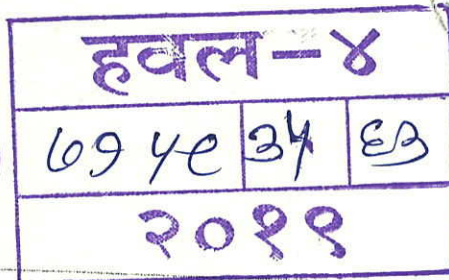 हवल-४
७१५९ ३५ ६३
२०१९